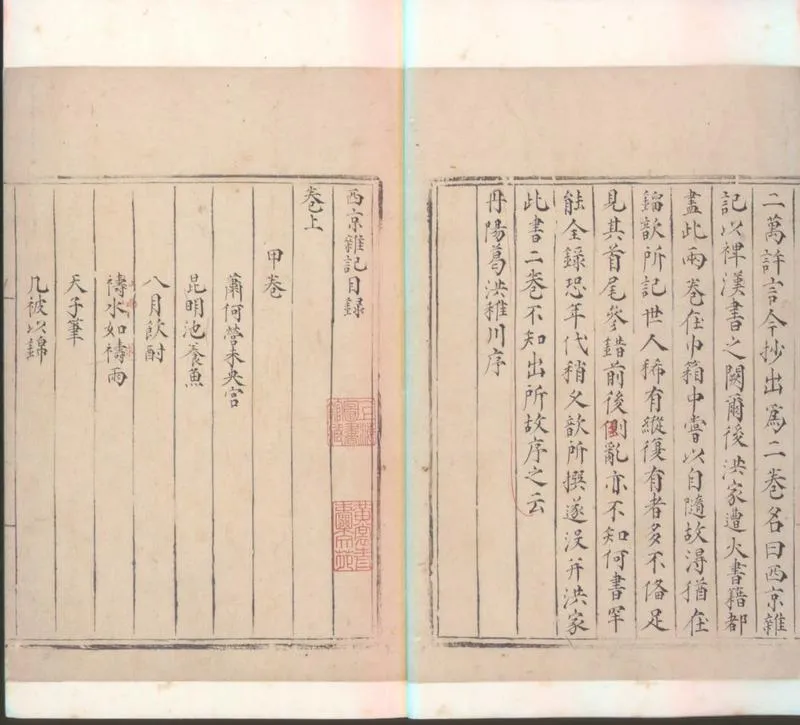 二萬許言今抄出爲二卷名曰西京雜
記以裨漢書之闕爾後洪家遭火書籍都
盡此兩卷在巾箱中嘗以自隨故得猶在
劉歆所記世人稀有縱復有者多不俻足
見其首尾參錯前後倒亂亦不知何書罕
能全錄恐年代稍乆歆所撰遂没并洪家
此書二卷不知出所故序之云
丹陽葛洪稚川序
西京雜記目録
卷上
甲卷
蕭何營未央宫
昆明池養魚
八月飲酎
禱水如禱雨
天子筆
几被以錦